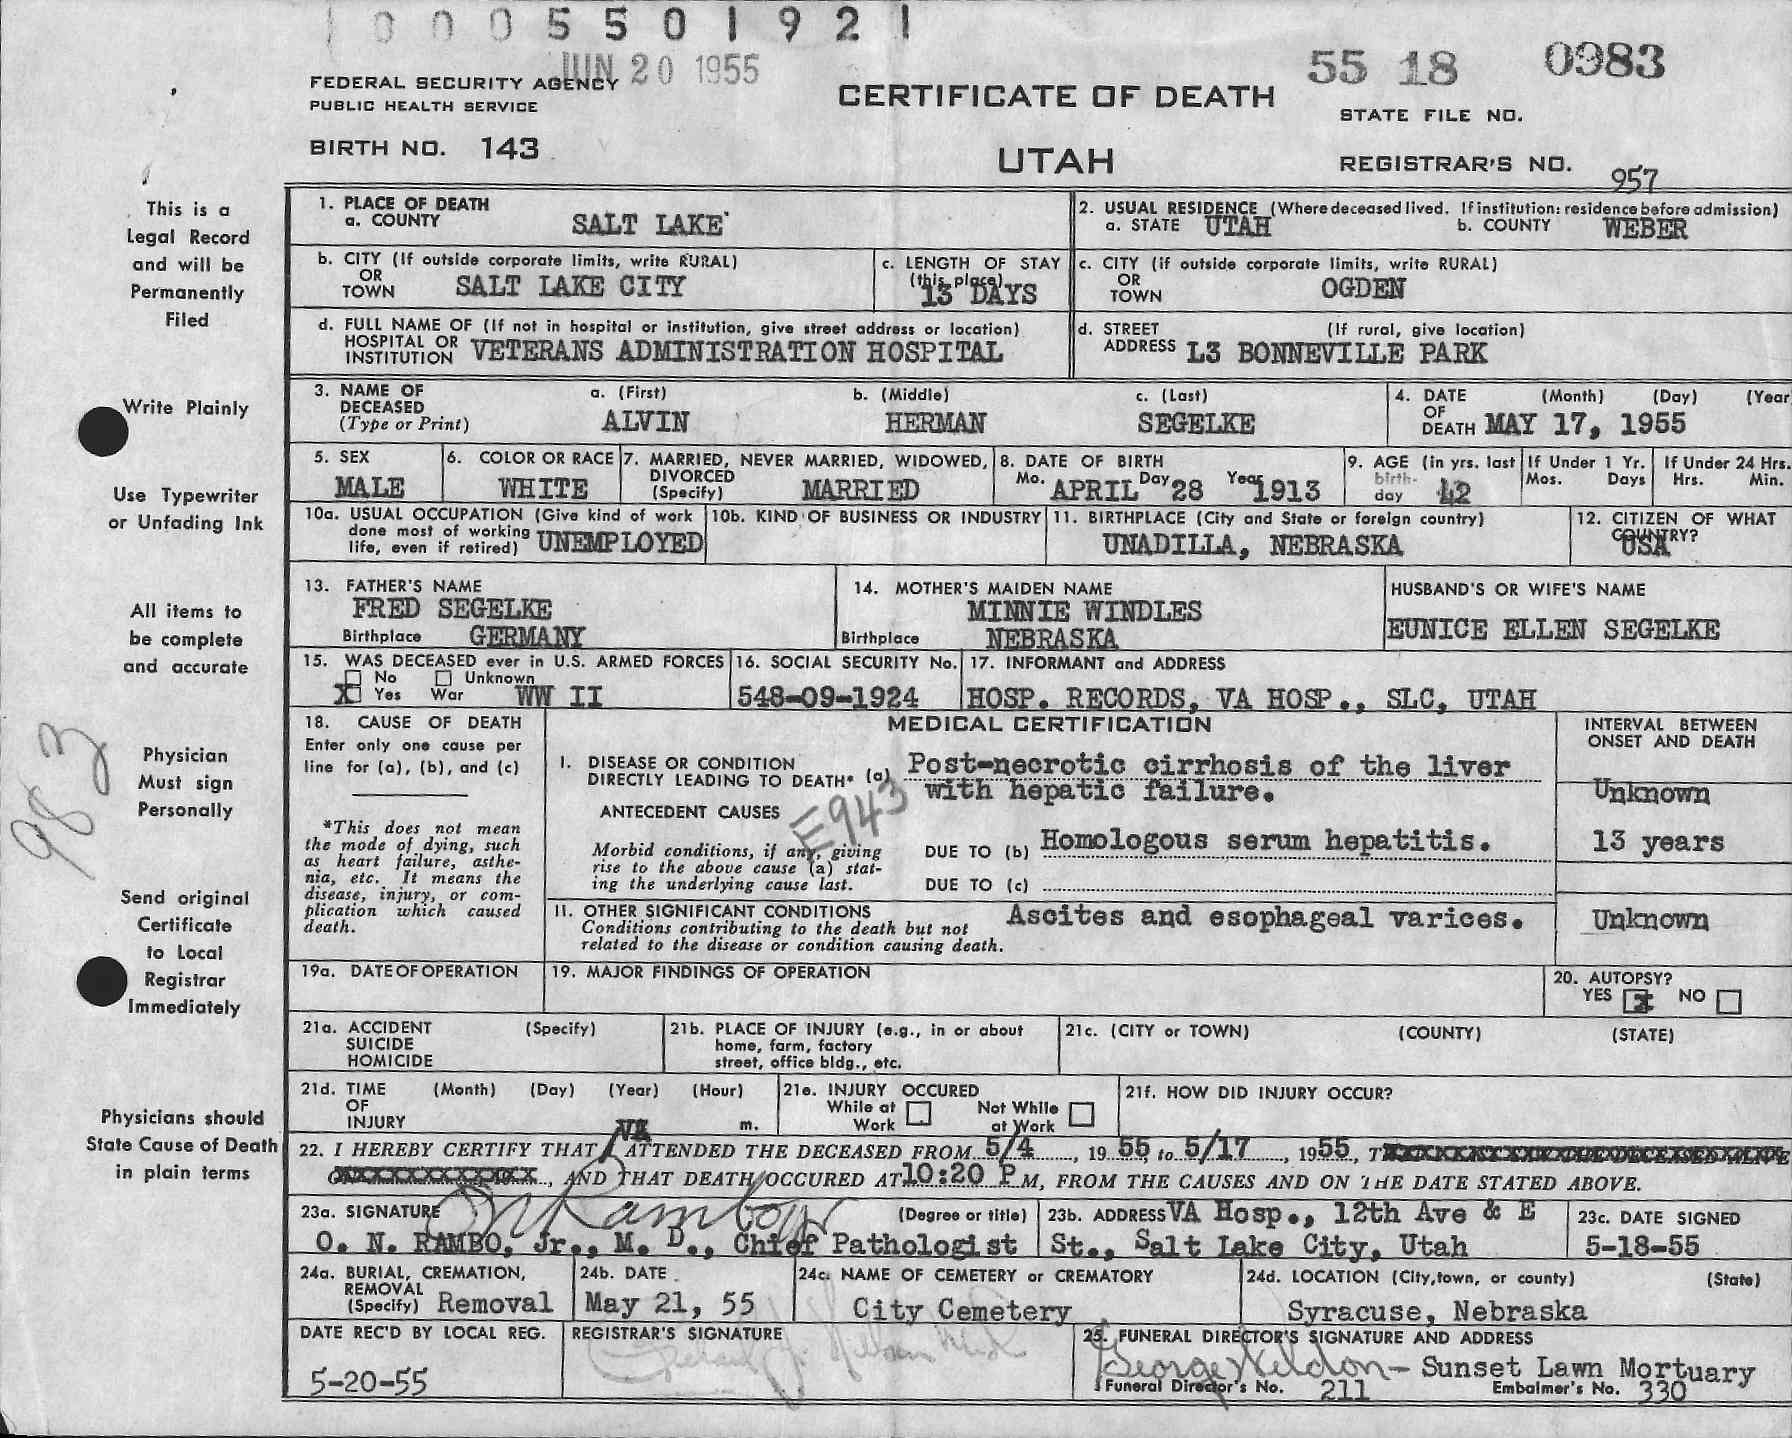 10005501921
JUN 20 1955
55 18 0983
FEDERAL SECURITY AGENCY
PUBLIC HEALTH SERVICE
CERTIFICATE OF DEATH
STATE FILE NO.
BIRTH NO. 143
UTAH
REGISTRAR'S NO. 957
This is a
Legal Record
and will be
Permanently
Filed
Write Plainly
Use Typewriter
or Unfading Ink
All items to
be complete
and accurate
983
Physician
Must sign
Personally
Send original
Certificate
to Local
Registrar
Immediately
Physicians should
State Cause of Death
in plain terms
1. PLACE OF DEATH
a. COUNTY SALT LAKE
2. USUAL RESIDENCE (Where deceased lived. If institution: residence before admission)
a. STATE UTAH b. COUNTY WEBER
b. CITY (If outside corporate limits, write RURAL)
OR
TOWN SALT LAKE CITY
c. LENGTH OF STAY
(this place)
13 DAYS
c. CITY (if outside corporate limits, write RURAL)
OR
TOWN OGDEN
d. FULL NAME OF (If not in hospital or institution, give street address or location)
HOSPITAL OR
INSTITUTION VETERANS ADMINISTRATION HOSPITAL
d. STREET (If rural, give location)
ADDRESS L3 BONNEVILLE PARK
3. NAME OF
DECEASED
(Type or Print)
a. (First) b. (Middle) c. (Last)
ALVIN HERMAN SEGELKE
4. DATE (Month) (Day) (Year
OF
DEATH MAY 17, 1955
5. SEX
MALE
6. COLOR OR RACE
WHITE
7. MARRIED, NEVER MARRIED, WIDOWED,
DIVORCED
(Specify) MARRIED
8. DATE OF BIRTH
Mo. APRIL Day 28 Year 1913
9. AGE (in yrs. last
birth-
day 42
If Under 1 Yr.
Mos. Days
If Under 24 Hrs.
Hrs. Min.
10a. USUAL OCCUPATION (Give kind of work
done most of working
life, even if retired) UNEMPLOYED
10b. KIND OF BUSINESS OR INDUSTRY
11. BIRTHPLACE (City and State or foreign country)
UNADILLA, NEBRASKA
12. CITIZEN OF WHAT
COUNTRY?
USA
13. FATHER'S NAME
FRED SEGELKE
Birthplace GERMANY
14. MOTHER'S MAIDEN NAME
MINNIE WINDLES
Birthplace NEBRASKA
HUSBAND'S OR WIFE'S NAME
EUNICE ELLEN SEGELKE
15. WAS DECEASED ever in U.S. ARMED FORCES
No Unknown
X Yes War WW II
16. SOCIAL SECURITY No.
548-09-1924
17. INFORMANT and ADDRESS
HOSP. RECORDS, VA HOSP., SLC, UTAH
18. CAUSE OF DEATH
Enter only one cause per
line for (a), (b), and (c)
*This does not mean
the mode of dying, such
as heart failure, asthe-
nia, etc. It means the
disease, injury, or com-
plication which caused
death.
MEDICAL CERTIFICATION
INTERVAL BETWEEN
ONSET AND DEATH
I. DISEASE OR CONDITION
DIRECTLY LEADING TO DEATH* (a) Post-necrotic cirrhosis of the liver
with hepatic failure.
Unknown
E943
ANTECEDENT CAUSES
Morbid conditions, if any, giving
rise to the above cause (a) stat-
ing the underlying cause last.
DUE TO (b) Homologous serum hepatitis. 13 years
DUE TO (c)
II. OTHER SIGNIFICANT CONDITIONS
Conditions contributing to the death but not
related to the disease or condition causing death.
Ascites and esophageal varices. Unknown
19a. DATE OF OPERATION
19. MAJOR FINDINGS OF OPERATION
20. AUTOPSY?
YES X NO
21a. ACCIDENT (Specify)
SUICIDE
HOMICIDE
21b. PLACE OF INJURY (e.g., in or about
home, farm, factory
street, office bldg., etc.
21c. (CITY or TOWN) (COUNTY) (STATE)
21d. TIME (Month) (Day) (Year) (Hour)
OF
INJURY m.
21e. INJURY OCCURED
While at
Work
Not While
at Work
21f. HOW DID INJURY OCCUR?
VA
22. I HEREBY CERTIFY THAT ATTENDED THE DECEASED FROM 5/4, 1955, to 5/17, 1955,
AND THAT DEATH OCCURED AT 10:20 P M, FROM THE CAUSES AND ON THE DATE STATED ABOVE.
23a. SIGNATURE ON Rambo Jr (Degree or title)
O. N. RAMBO, Jr., M. D., Chief Pathologist
23b. ADDRESS VA Hosp., 12th Ave & E
St., Salt Lake City, Utah
23c. DATE SIGNED
5-18-55
24a. BURIAL, CREMATION,
REMOVAL
(Specify) Removal
24b. DATE
May 21, 55
24c. NAME OF CEMETERY or CREMATORY
City Cemetery
24d. LOCATION (City, town, or county) (State)
Syracuse, Nebraska
DATE REC'D BY LOCAL REG.
5-20-55
REGISTRAR'S SIGNATURE
25. FUNERAL DIRECTOR'S SIGNATURE AND ADDRESS
George Weldon - Sunset Lawn Mortuary
Funeral Director's No. 211 Embalmer's No. 330